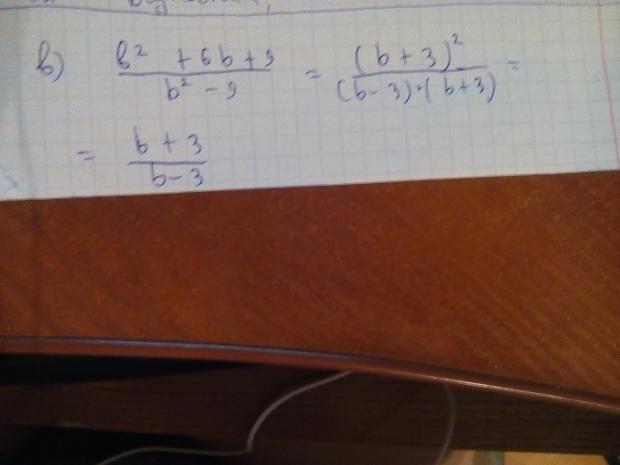 в) (b² + 6b + 9)/(b² - 9) = (b + 3)²/((b - 3)·(b + 3)) =
= (b + 3)/(b - 3)